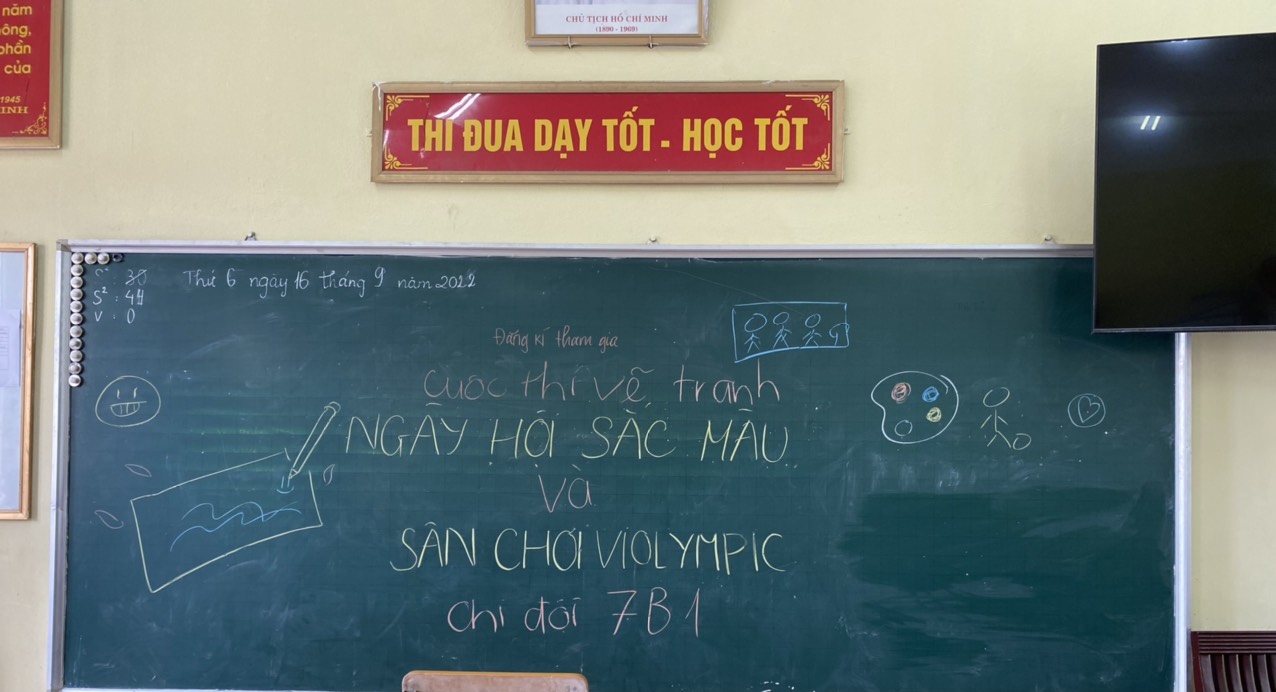 năm
ông,
phần
của
1945
INH
CHỦ TỊCH HỒ CHÍ MINH
(1890 - 1969)
THI ĐUA DẠY TỐT - HỌC TỐT
S : 38
S² : 44
V : 0
Thứ 6 ngày 16 tháng 9 năm 2022
Đăng kí tham gia
Cuộc thi vẽ tranh
NGÀY HỘI SẮC MÀU
Và
SÂN CHƠI VIOLYMPIC
Chi đội 7B1